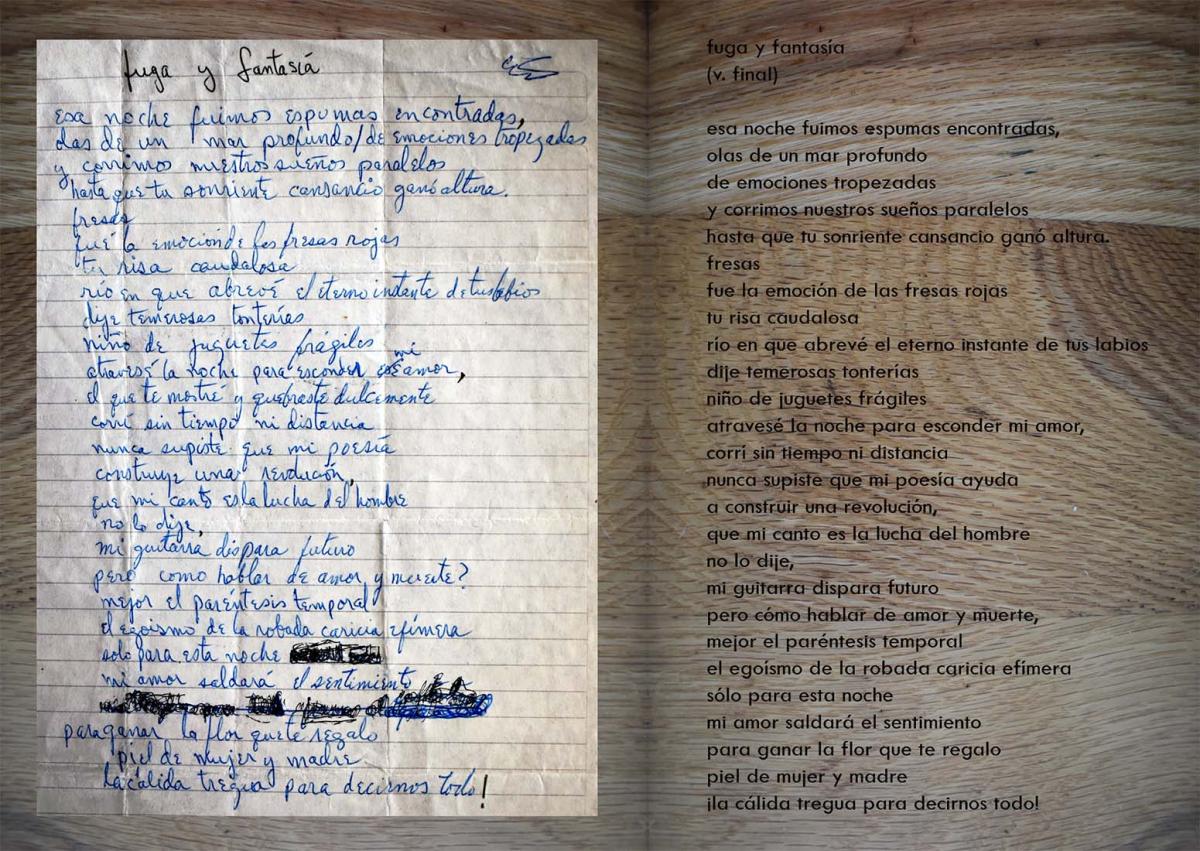 fuga y fantasiá
esa noche fuimos espumas encontradas,
olas de un mar profundo/de emociones tropezadas
y corrimos nuestros sueños paralelos
hasta que tu sonriente cansancio ganó altura.
fresas
fué la emoción de las fresas rojas
tu risa caudalosa
río en que abrevé el eterno instante de tus labios
dije temerosas tonterías
niño de juguetes frágiles
mi
atravesé la noche para esconder amor,
el que te mostré y quebraste dulcemente
corrí sin tiempo ni distancia
nunca supiste que mi poesía
construye una revolución,
que mi canto es la lucha del hombre
no lo dije,
mi guitarra dispara futuro
pero como hablar de amor y muerte?
mejor el paréntesis temporal
el egoísmo de la robada caricia efímera
solo para esta noche
mi amor saldará el sentimiento
para ganar la flor que te regalo
piel de mujer y madre
la cálida tregua para decirnos todo!
fuga y fantasía
(v. final)
esa noche fuimos espumas encontradas,
olas de un mar profundo
de emociones tropezadas
y corrimos nuestros sueños paralelos
hasta que tu sonriente cansancio ganó altura.
fresas
fue la emoción de las fresas rojas
tu risa caudalosa
río en que abrevé el eterno instante de tus labios
dije temerosas tonterías
niño de juguetes frágiles
atravesé la noche para esconder mi amor,
corrí sin tiempo ni distancia
nunca supiste que mi poesía ayuda
a construir una revolución,
que mi canto es la lucha del hombre
no lo dije,
mi guitarra dispara futuro
pero cómo hablar de amor y muerte,
mejor el paréntesis temporal
el egoísmo de la robada caricia efímera
sólo para esta noche
mi amor saldará el sentimiento
para ganar la flor que te regalo
piel de mujer y madre
¡la cálida tregua para decirnos todo!